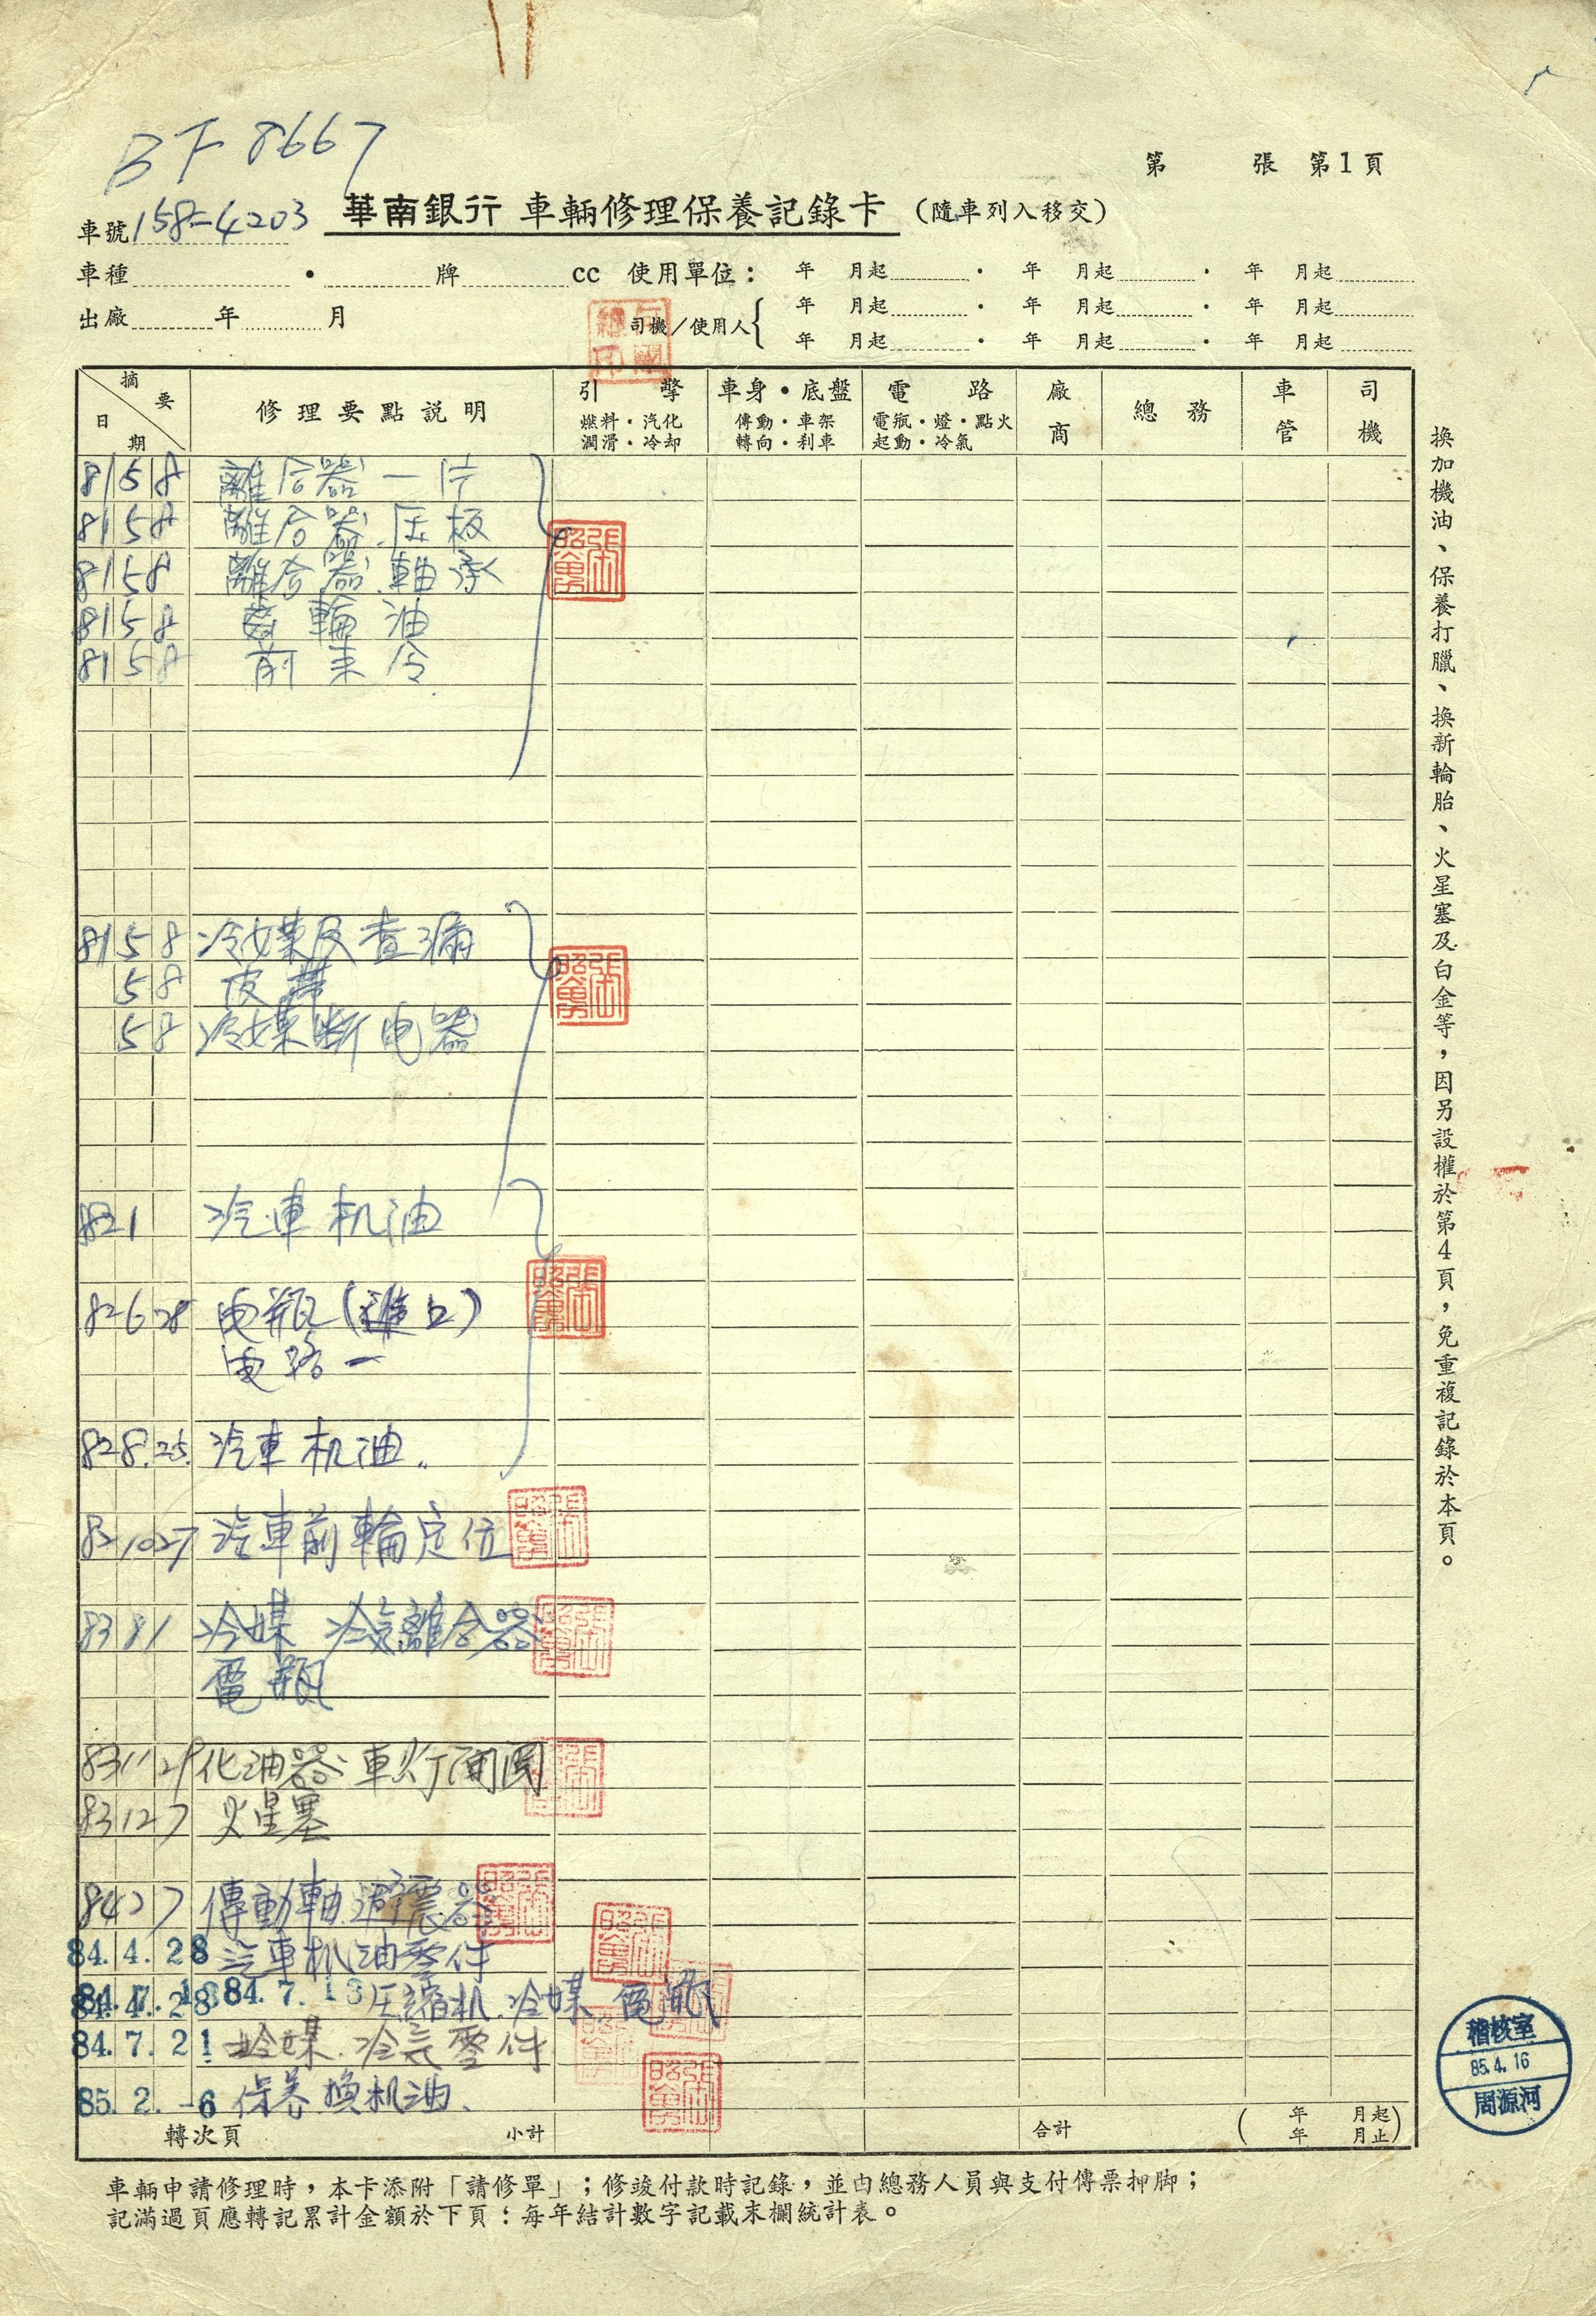 BF 8667
第　張 第1頁
車號158-4203 華南銀行 車輛修理保養記錄卡 (隨車列入移交)
車種　・　牌　cc 使用單位： 年 月起　・ 年 月起　・ 年 月起
出廠　年　月
司機／使用人{ 年 月起　・ 年 月起　・ 年 月起
年 月起　・ 年 月起　・ 年 月起
摘要 日期 修理要點說明 引擎 燃料・汽化 潤滑・冷却 車身・底盤 傳動・車架 轉向・剎車 電路 電瓶・燈・點火 起動・冷氣 廠商 總務 車管 司機
81 5 8 離合器一片
81 5 8 離合器 压板
81 5 8 離合器 軸承
81 5 8 齒輪油
81 5 8 前来令
81 5 8 冷媒及查漏
5 8 皮帶
5 8 冷媒断电器
82 1 汽車机油
82 6 28 电瓶
电路一
82 8. 25. 汽車机油
82 10 27 汽車前輪定位
83 8 1 冷媒 冷氣離合器
電瓶
83 11 29 化油器 車灯開関
83 12 7 火星塞
84 2 7 傳動軸 避震器
84. 4. 28 汽車机油零件
84. 7. 13 压縮机 冷媒 電瓶
84. 7. 21 冷媒. 冷気零件
85. 2. -6 保养換机油.
轉次頁 小計 合計 ( 年 月起 年 月止)
車輛申請修理時，本卡添附「請修單」；修竣付款時記錄，並凷總務人員與支付傳票押脚；
記滿過頁應轉記累計金額於下頁：每年結計數字記載末欄統計表。
換加機油、保養打臘、換新輪胎、火星塞及白金等，因另設欄於第4頁，免重複記錄於本頁。
稽核室
85.4.16
周源河